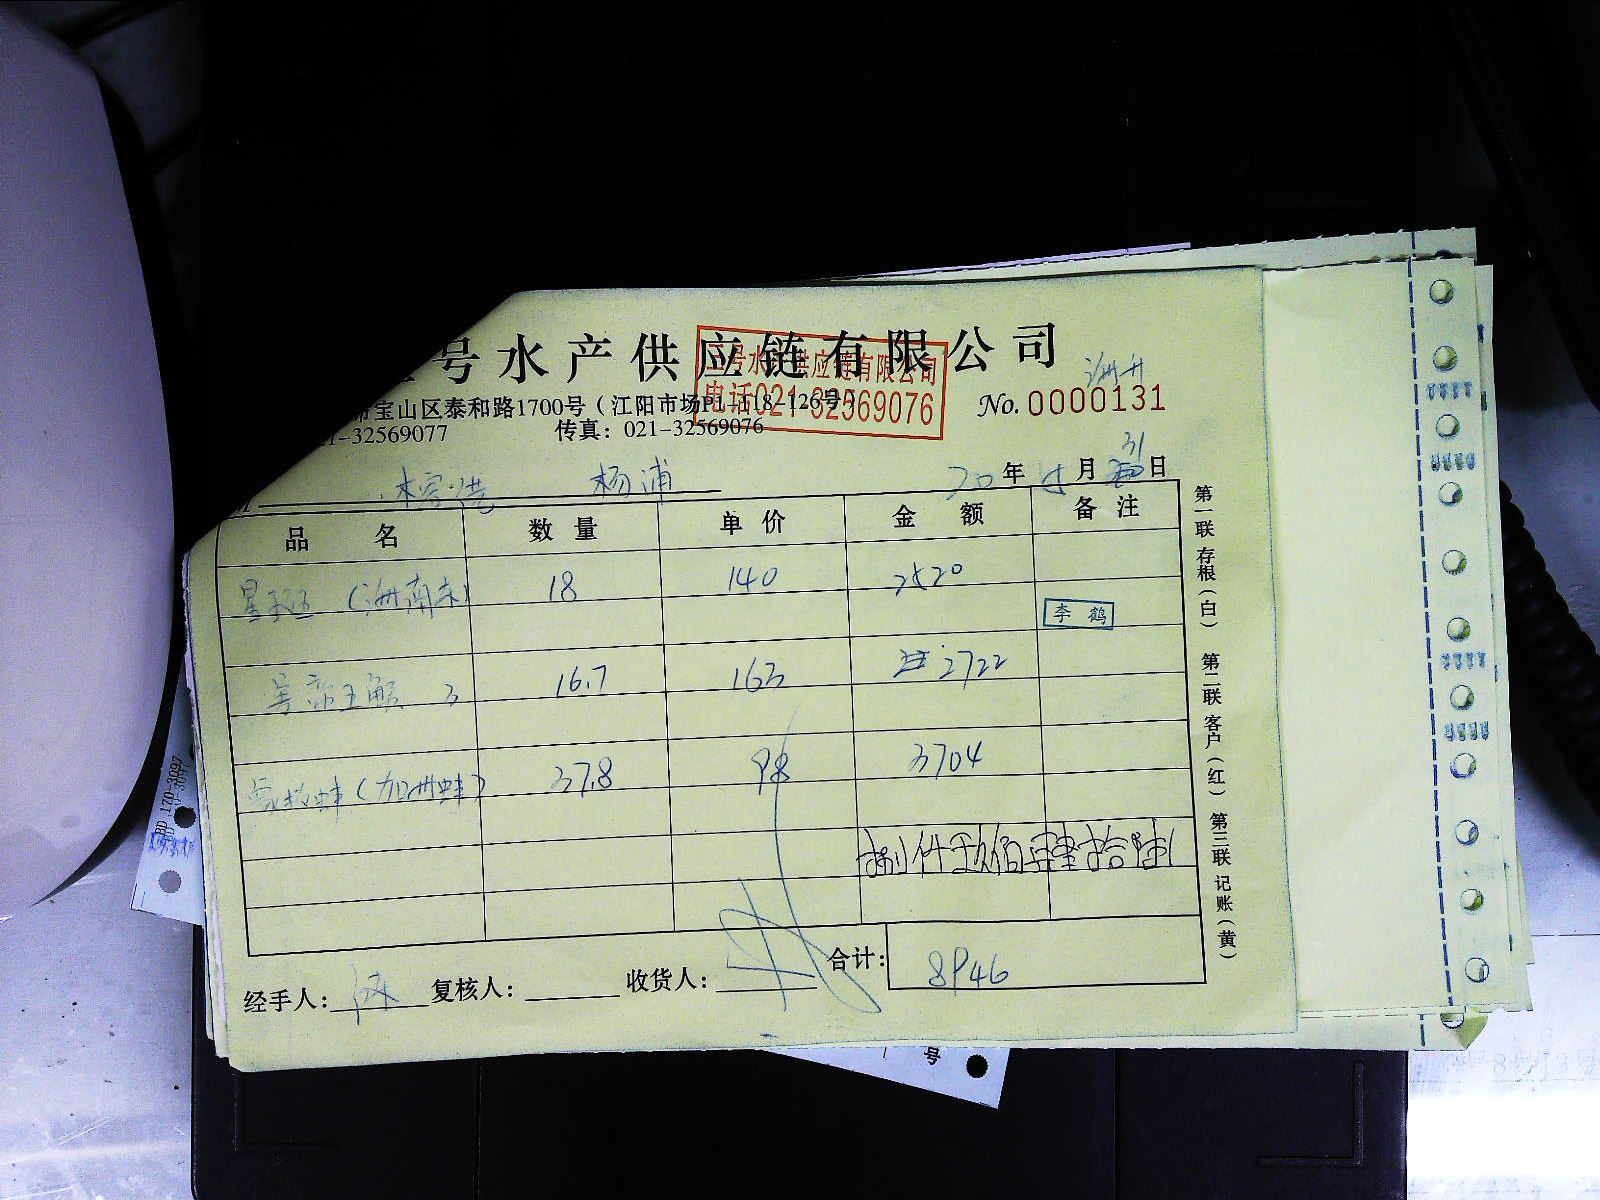 号水产供应链有限公司
三号水产供应链有限公司
电话021-32569076
海丹
市宝山区泰和路1700号（江阳市场P1-118-126号）
No. 0000131
1-32569077 传真：021-32569076
杨浦
20年 月31日
品名 数量 单价 金额 备注
星斑（海南 18 140 2520
李鹤
帝王蟹 3 16.7 163 2722
象拔蚌（加州蚌） 37.8 98 3704
捌仟玖佰肆拾陆
经手人： 复核人： 收货人： 合计： 8946
第一联存根（白） 第二联客户（红） 第三联记账（黄）
BD 170-3097
号